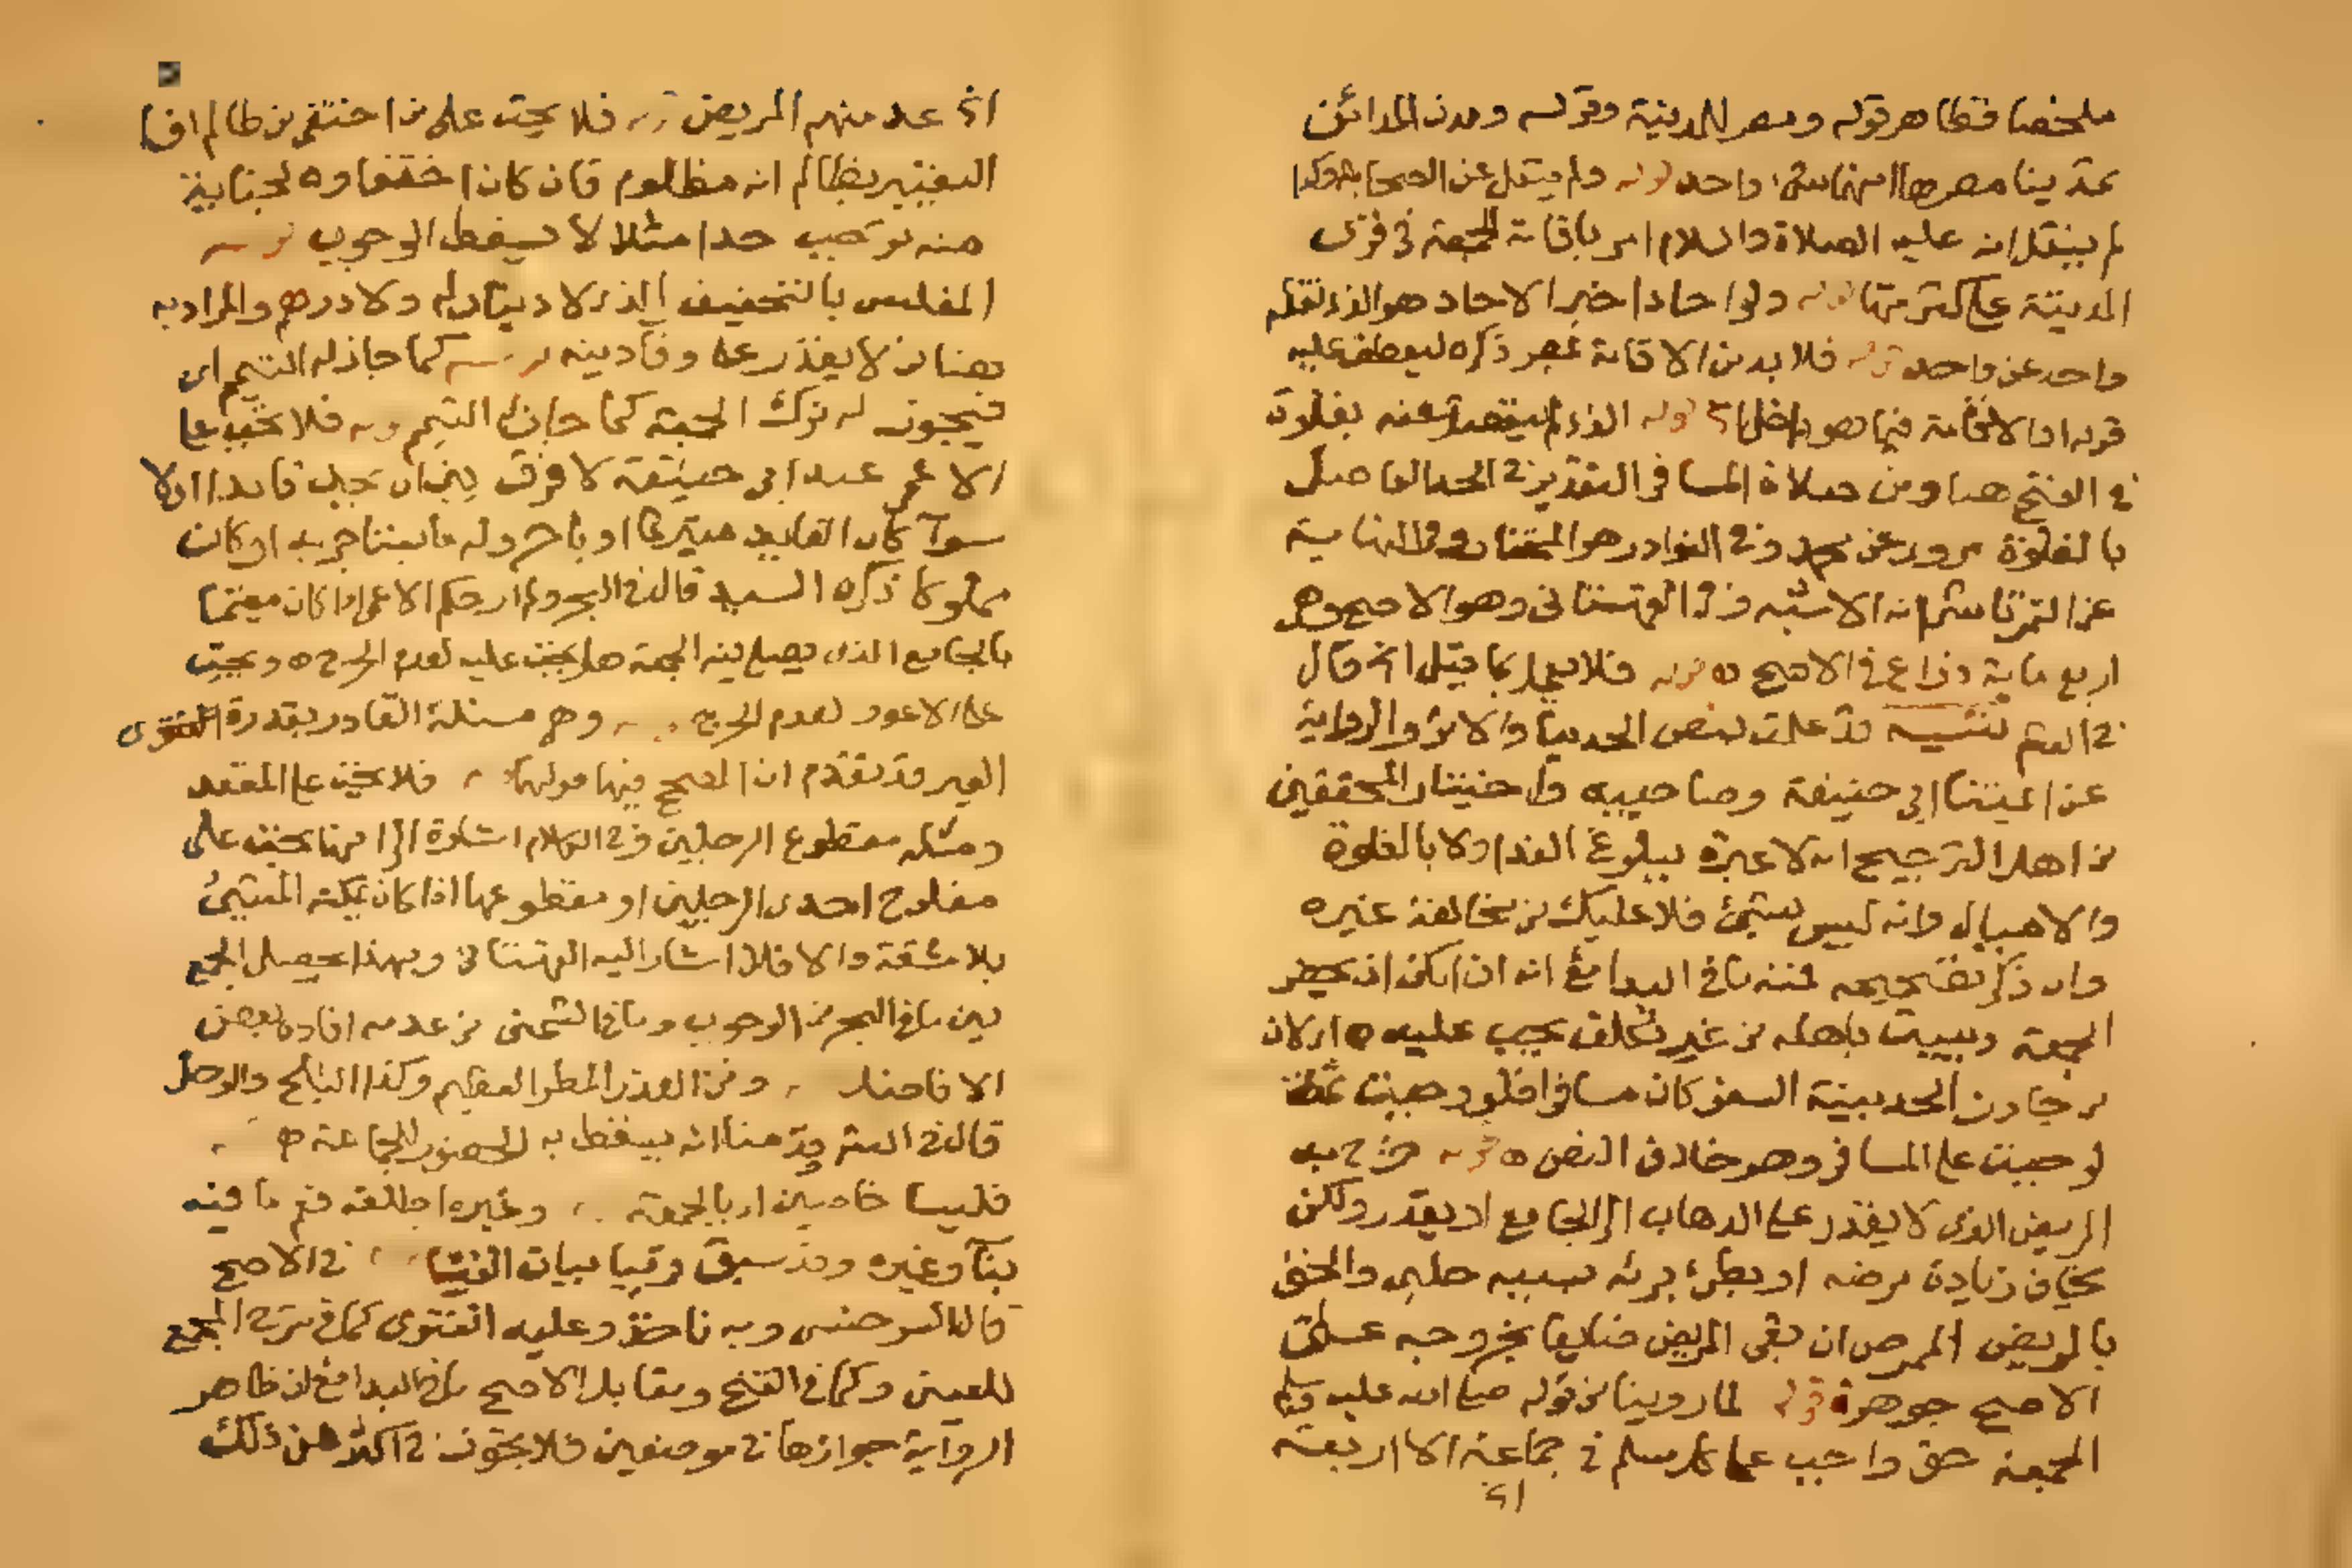 ملخصا فظاهر قوله ومصر المدينة وقوله ومدن المدائن
تمدينا مصرها انهما شئ واحد قوله ولم ينقل عن الصحابة وكذا
لم ينقل انه عليه الصلاة والسلام امر باقامة الجمعة في قرى
المدينة على كثرتها قوله ولو احادا خبر الاحاد هو الذي نقله
واحد عن واحد قوله فلا بد من الاقامة بمصر ذكره ليعطف عليه
قوله او الاقامة فيما هو داخل قوله الذي لم ينفصل عنه بغلوة
في الفتح هنا ومن صلاة المسافر التقدير في الحد الفاصل
بالغلوة مروي عن محمد وفي النوادر هو المختار وفي
عن التمرتاشي انه الاشبه وفي القهستاني وهو الاصح وهي
اربع ماية ذراع في الاصح قوله فلا يعمل بما قيل اي قال
في تنبيه قد علمت بنص الحديث والاثر والرواية
عن ائمتنا ابي حنيفة وصاحبيه واختيار المحققين
من اهل الترجيح انه لا عبرة ببلوغ الندا ولا بالغلوة
والاميال وانه ليس بشئ فلا عليك من مخالفة غيره
وان ذكر تصحيحه فمنه ما في البدائع انه ان امكن ان يحضر
الجمعة ويبيت باهله من غير تكلف يجب عليه
من جاوز المدينة السفر كان مسافرا فلو وجبت
لوجبت على المسافر وهو خلاف النص قوله خرج به
المريض الذي لا يقدر على الذهاب الى الجامع او يقدر ولكن
يخاف زيادة مرضه او بطئ برئه بسببه حلبي والحق
بالمريض الممرض ان بقي المريض ضايعا بخروجه على
الاصح جوهرة قوله لما روينا من قوله صلى الله عليه وسلم
الجمعة حق واجب على كل مسلم في جماعة الا اربعة
اي عد منهم المريض قوله فلا يجب على من اختفى من ظالم افا
التعبير بظالم انه مظلوم فان كان اختفاوه لجناية
منه توجب حدا مثلا لا يسقط الوجوب قوله
المفلس بالتخفيف الذي لا دينار له ولا درهم والمراد به
هنا من لا يقدر على وفا دينه قوله كما جاز له التيمم اى
فيجوز له ترك الجمعة كما جاز له التيمم قوله فلا تجب على
الاعمى عند ابي حنيفة لا فرق بين ان يجد قايدا او لا
سوآ كان القايد متبرعا او باجر وله ما يستاجر به او كان
مملوكا ذكره السيد قال في البحر ولم ار حكم الاعمى اذا كان مقيما
بالجامع الذي يصلى فيه الجمعة هل يجب عليه لعدم الحرج ه ويجب
على الاعور لعدم الحرج وهي مسئلة القادر بقدرة
الغير قد تقدم ان المصحح فيها قولهما فلا تجب على المقعد
ومثله مقطوع الرجلين وفي الكلام اشارة الى انها تجب على
مفلوج احدى الرجلين او مقطوعها اذا كان يمكنه المشي
بلا مشقة والا فلا اشار اليه القهستاني وبهذا يحصل الجمع
بين ما في البحر من الوجوب وما في الشمني من عدمه افاده بعض
الافاضل ومن العذر المطر العظيم وكذا الثلج والوحل
قال في قدمنا انه يسقط به الحضور للجماعة ه
فليسا خاصين بالجمعة وغيره اطلقه فعم ما فيه
بنآ وغيره وقد سبق قريبا بيان الفنا في الاصح
قال السرخسي وبه ناخذ وعليه الفتوى كما في شرح المجمع
للعيني وكما في الفتح ومقابل الاصح ما في البدائع ان ظاهر
الرواية جوازها في موضعين فلا تجوز في اكثر من ذلك